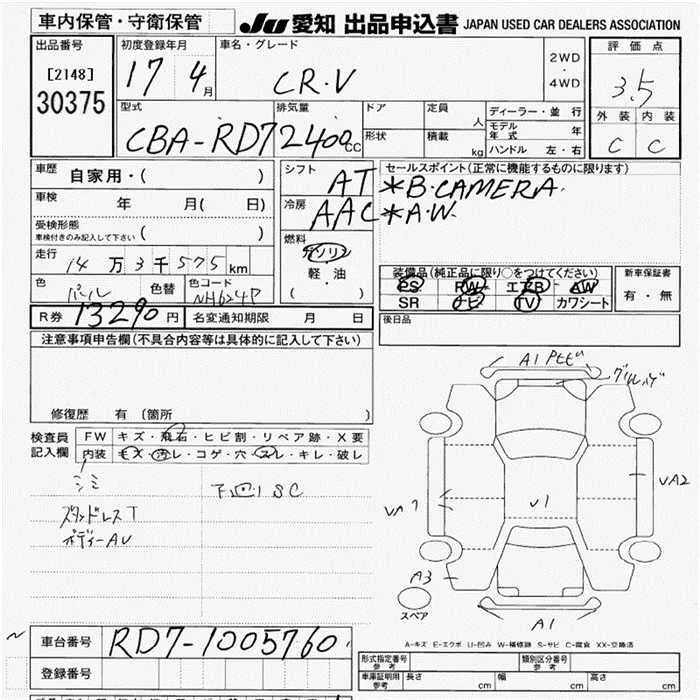 車内保管・守衛保管
JU 愛知 出品申込書 JAPAN USED CAR DEALERS ASSOCIATION
出品番号
[2148]
30375
初度登録年月
17 4月
車名・グレード
CR-V
2WD
・
4WD
評価点
3.5
外装 内装
C C
型式
CBA-RD7
排気量
2400cc
ドア
形状
定員 人
積載 kg
ディーラー・並行
モデル年式 年
ハンドル 左・右
車歴 自家用・( )
車検 年 月( 日)
受検形態
車検付きのみ記入して下さい ( )
走行 14万3千575km
色 パール 色替 色コード NH624P
R券 13290円 名変通知期限 月 日
シフト AT
冷房 AAC
燃料
ガソリン
・
軽油
( )
セールスポイント(正常に機能するものに限ります)
*B.CAMERA.
*A.W.
装備品(純正品に限り○をつけてください)
PS PW エアB AW
SR ナビ TV カワシート
新車保証書
有・無
後日品
注意事項申告欄(不具合内容等は具体的に記入して下さい)
修復歴 有〔箇所 〕
検査員記入欄
FW キズ・飛石・ヒビ割・リペア跡・X要
内装 キズ・汚レ・コゲ・穴・スレ・キレ・破レ
シミ
下回りSC
ボディーAU
A1
グリルハゲ
VA2
VA7
V1
A3
スペア
A1
A-キズ E-エクボ U-凹み W-補修跡 S-サビ C-腐食 XX-交換済
車台番号 RD7-1005760
登録番号
形式指定番号
参考
類別区分番号
参考
車庫証明用
参考
長さ cm 幅 cm 高さ cm